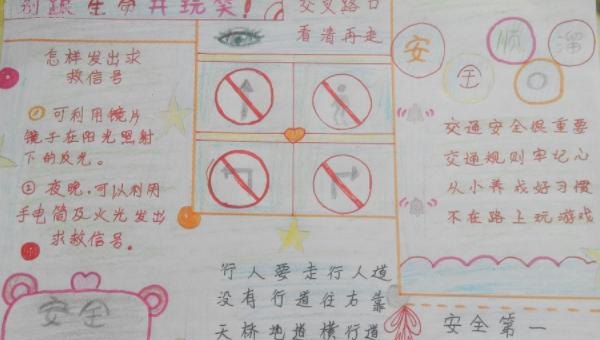 别跟生命开玩笑!
怎样发出求
救信号
① 可利用镜片
镜子在阳光照射
下的反光。
② 夜晚,可以利用
手电筒及火光发出
求救信号。
安全
交叉路口
看清再走
行人要走行人道
没有行道往右靠
天桥地道横行道
安全顺溜
交通安全很重要
交通规则牢记心
从小养成好习惯
不在路上玩游戏
安全第一